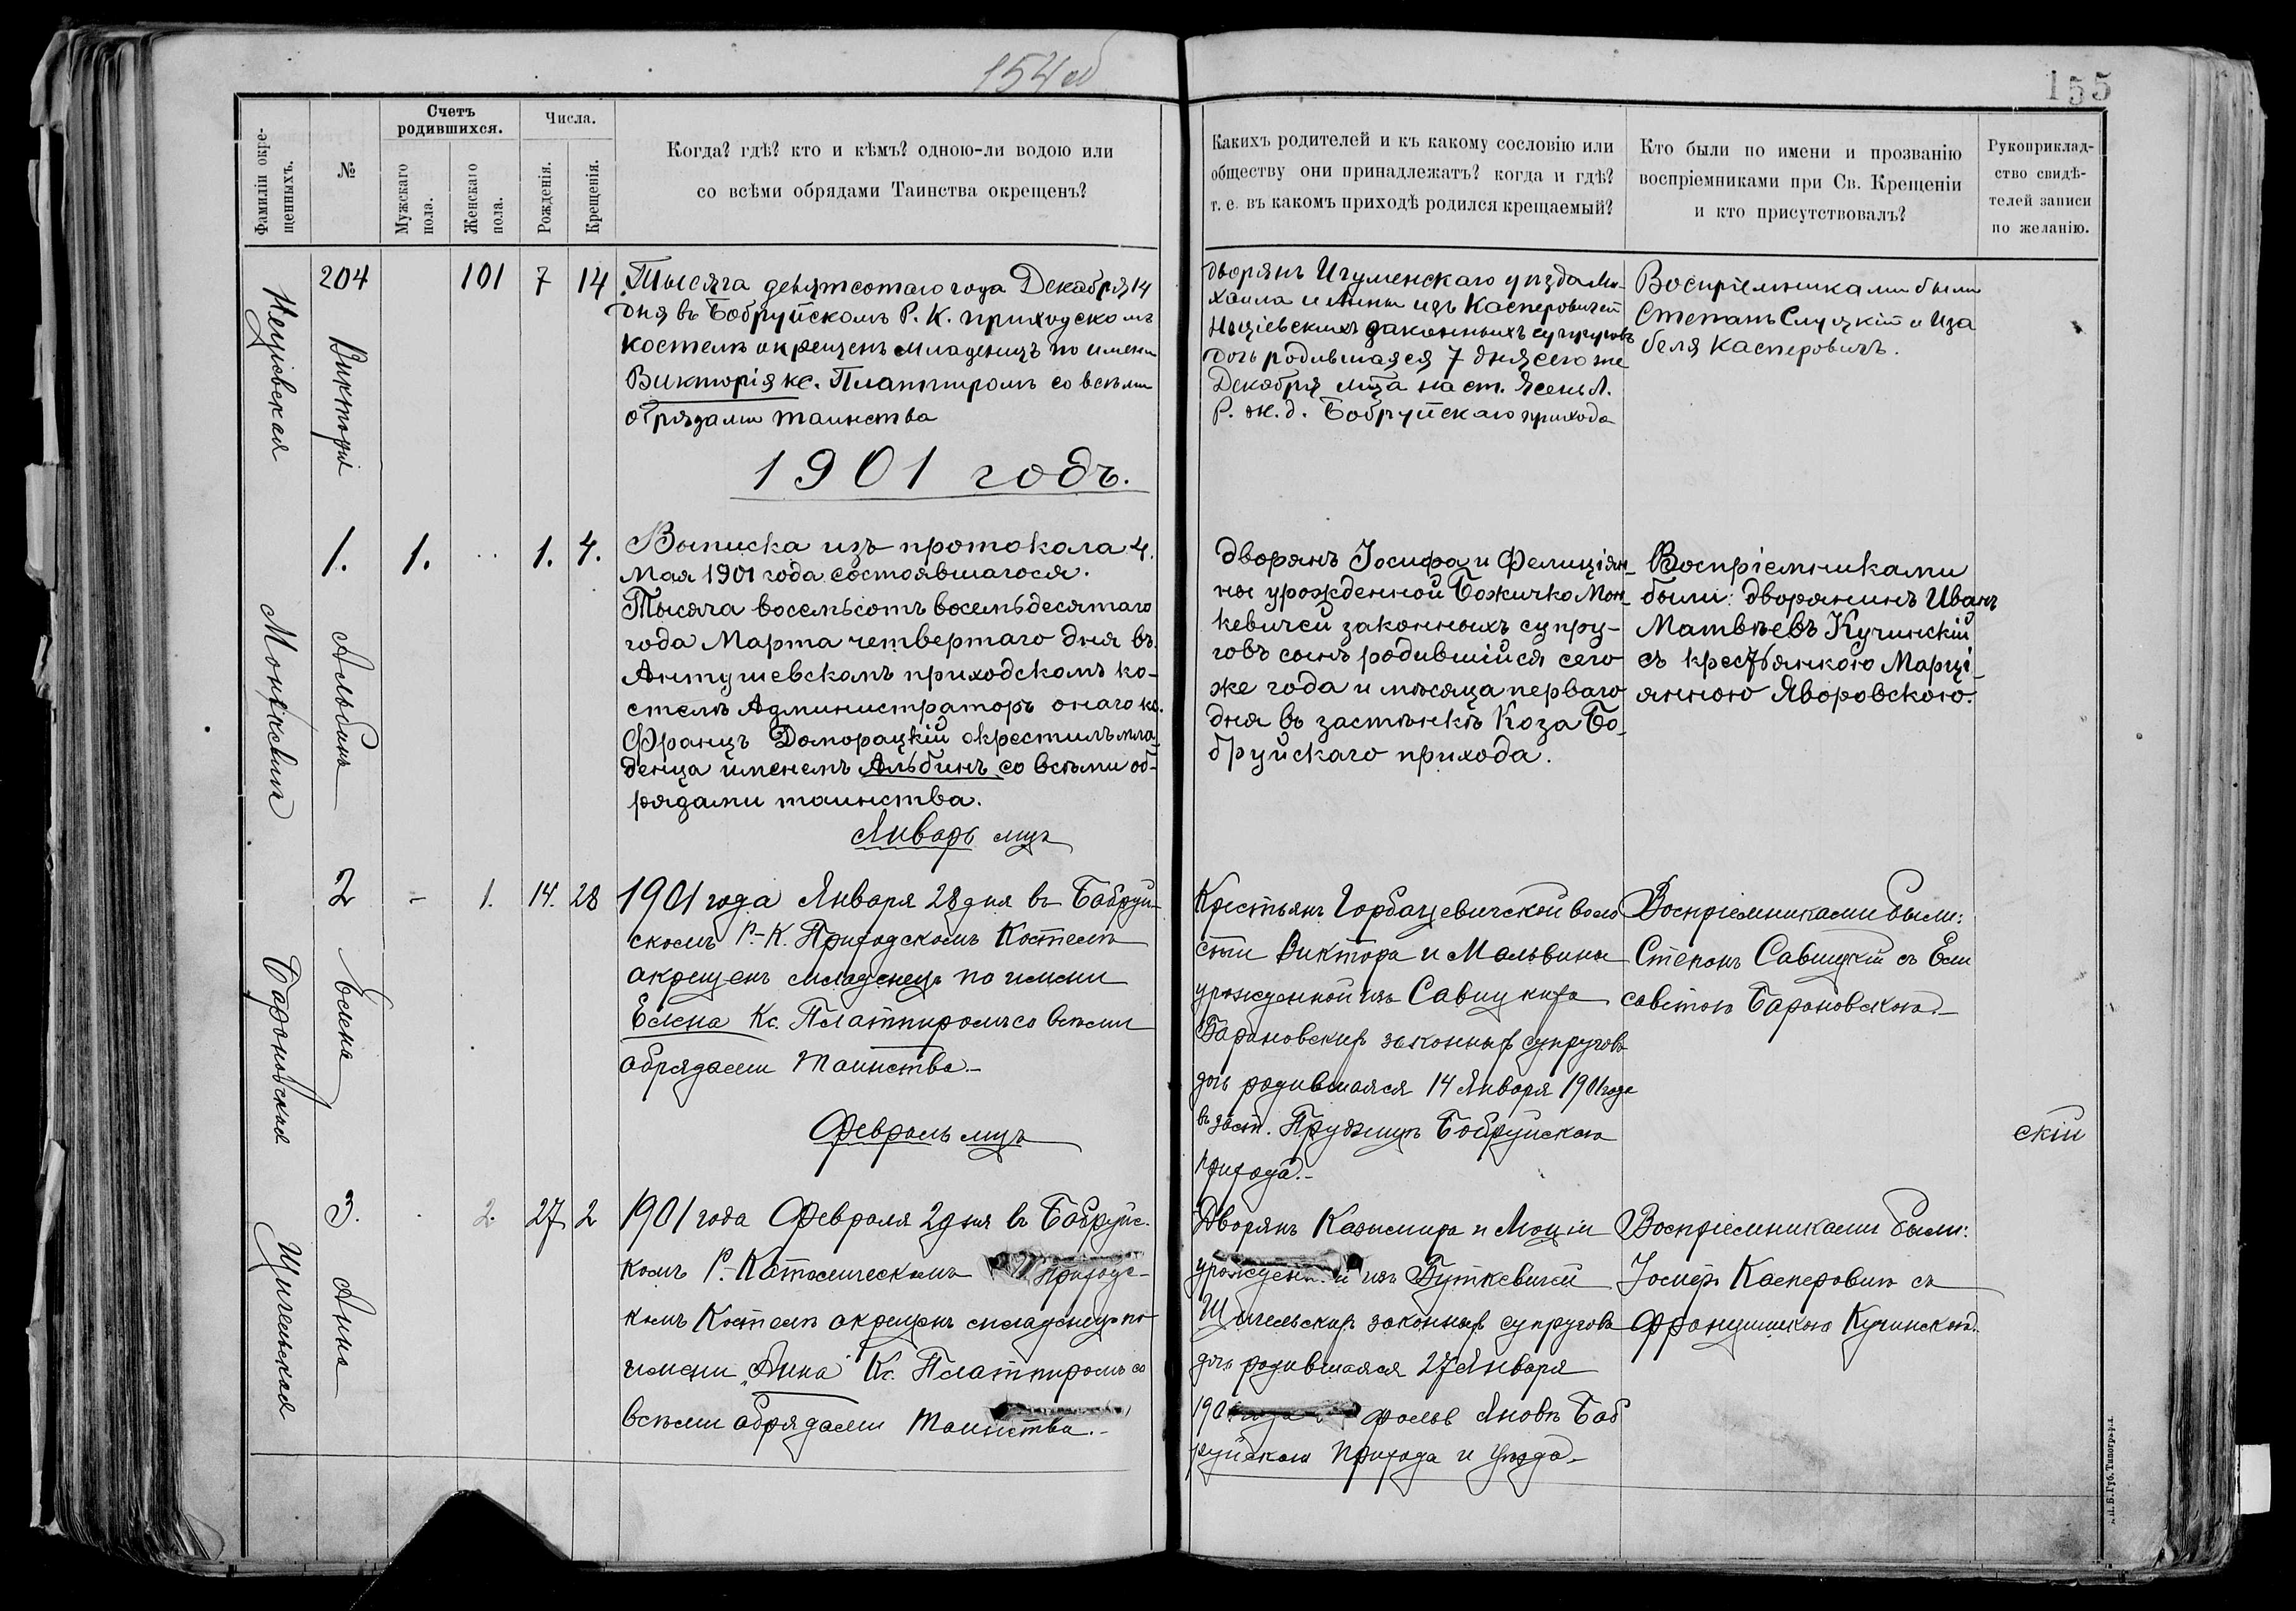 154 об
155
Фамиліи окре-
щенныхъ.
№
Счетъ
родившихся.
Мужскаго
пола.
Женскаго
пола.
Числа.
Рожденія.
Крещенія.
Когда? гдѣ? кто и кѣмъ? одною-ли водою или
со всѣми обрядами Таинства окрещенъ?
Какихъ родителей и къ какому сословію или
обществу они принадлежатъ? когда и гдѣ?
т. е. въ какомъ приходѣ родился крещаемый?
Кто были по имени и прозванію
воспріемниками при Св. Крещеніи
и кто присутствовалъ?
Рукоприклад-
ство свидѣ-
телей записи
по желанію.
204
Викторія
101
7
14
Тысяча девятсотаго года Декабря 14
дня въ Бобруйскомъ Р. К. приходскомъ
костелѣ окрещенъ младенецъ по имени
Викторія кс. Платпиромъ со всѣми
обрядами таинства
дворянъ Игуменскаго уѣзда Ми-
хаила и Анны изъ Касперовичей
законныхъ супруговъ
дочь родившаяся 7 дня сего же
Декабря мца на ст. Ясень Л.
Р. ж. д. Бобруйскаго прихода
Воспріемниками были
Степанъ Слуцкій и Иза
беля Касперовичъ.
1901 годъ.
Монкевич
1.
Альбинъ
1.
1.
4.
Выписка изъ протокала 4.
Мая 1901 года состоявшагося.
Тысяча восемьсотъ восемьдесятаго
года Марта четвертаго дня въ
Антушевскомъ приходскомъ ко-
стелѣ Администраторъ онаго кс.
Францъ Доморацкій окрестилъ мла-
денца именемъ Альбинъ со всѣми об-
рядами таинства.
дворянъ Іосифа и Фелиціян-
ны урожденной Божичко Мон-
кевичей законныхъ супру-
говъ сынъ родившійся сего
же года и мѣсяца перваго
дня въ застѣнкѣ Коза Бо-
бруйскаго прихода.
Воспріемниками
были: дворянинъ Иванъ
Матвѣевъ Кучинскій
съ крестьянкою Марці-
янною Яворовскою.
Январь мцъ
Барановская
2
Елена
-
1.
14.
28
1901 года Января 28 дня въ Бабруй-
скомъ Р.-К. Приходскомъ Костелѣ
акрещенъ младенецъ по имени
Елена Кс. Платпиромъ со всѣми
абрядами Таинства.-
Крестьянъ Горбацевичской воло
сти Виктора и Мальвины
урожденной изъ Савицкихъ
Барановскихъ законныхъ супруговъ
дочь родившаяся 14 Января 1901 года
въ заст. Прудзищѣ Бобруйскаго
прихода.-
Воспріемниками были:
Степанъ Савицкій съ Ели
саветою Барановскою.-
скій
Февраль мцъ
3.
Анна
2.
27
2
1901 года Февраля 2 дня въ Бабруйс-
комъ Р.-Католическомъ приходс-
комъ Костелѣ акрещенъ младенецъ по
имени „Анна" Кс. Платпиромъ со
всѣми абрядами Таинства.-
Дворянъ Казимира и
изъ Буткевичей
законныхъ супруговъ
дочь родившаяся 27 Января
фольв Яновѣ Боб
руйскаго прихода и уѣзда.-
Воспріемниками были:
Іосифъ Касперовичъ съ
Францишкою Кучинскою.